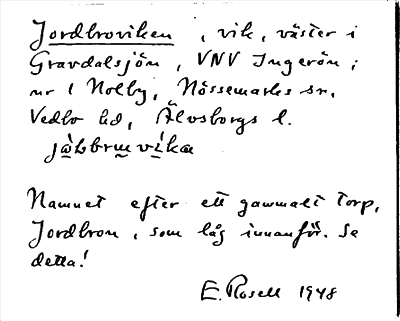 Jordbroviken, vik, väster i
Gravdalsjön, VNV Ingerön;
nr 1 Nolby, Nössemarks sn,
Vedbo hd, Älvsborgs l.
Namnet efter ett gammalt torp,
Jordbron, som låg innanför. Se
detta!
E. Rosell 1948